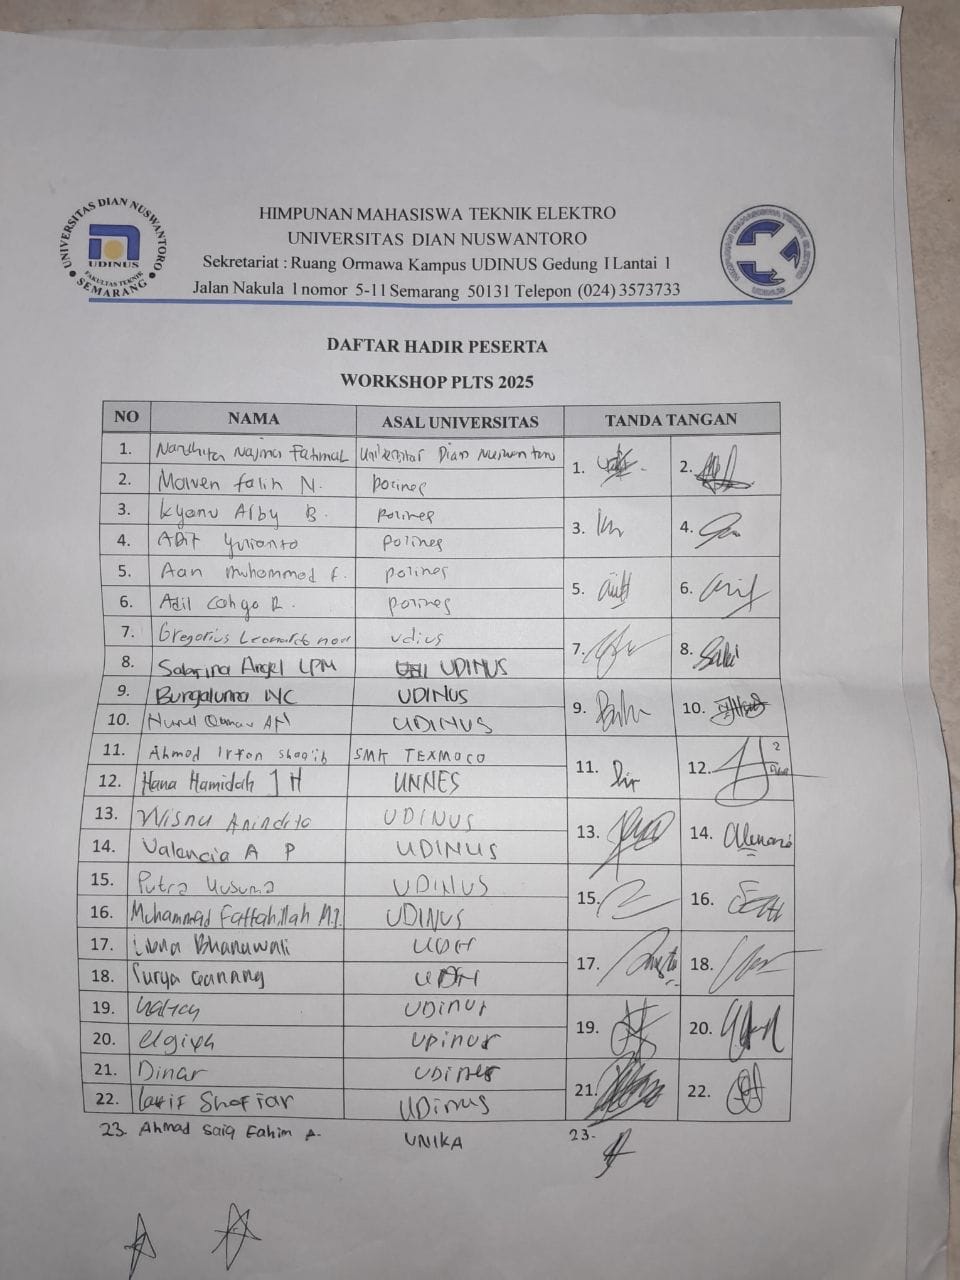 UNIVERSITAS DIAN NUSWANTORO
UDINUS
FAKULTAS TEKNIK
SEMARANG
HIMPUNAN MAHASISWA TEKNIK ELEKTRO
UNIVERSITAS DIAN NUSWANTORO
Sekretariat : Ruang Ormawa Kampus UDINUS Gedung I Lantai 1
Jalan Nakula 1 nomor 5-11 Semarang 50131 Telepon (024) 3573733
HIMPUNAN MAHASISWA TEKNIK ELEKTRO
UDINUS
DAFTAR HADIR PESERTA
WORKSHOP PLTS 2025
NO NAMA ASAL UNIVERSITAS TANDA TANGAN
1. Nardhita Najma Fatimah Universitas Dian Nuswantoro 1. 2.
2. Maiven falih N. polines
3. Kyanu Alby B. polines 3. 4.
4. Abit Yulianto polines
5. Aan Muhammad F. polines 5. 6.
6. Adil Cahyo R. polines
7. Gregorius Leonardo udius 7. 8.
8. Sabrina Angel LPM UDINUS
9. Bungaluna NC UDINUS 9. 10.
10. Nurul AN UDINUS
11. Ahmad Irfan Shaqib SMK TEXMACO 11. 12.
12. Hana Hamidah J H UNNES
13. Wisnu Anindito UDINUS 13. 14.
14. Valencia A P UDINUS
15. Putra Kusuma UDINUS 15. 16.
16. Muhammad Fattahillah M.J. UDINUS
17. Bhanuwali UDN 17. 18.
18. Surya Ganang UDN
19. UDinus 19. 20.
20. elgiya UDinus
21. Dinar UDinus 21. 22.
22. Shofiar UDinus
23. Ahmad Saiq Fahim A. UNIKA 23.